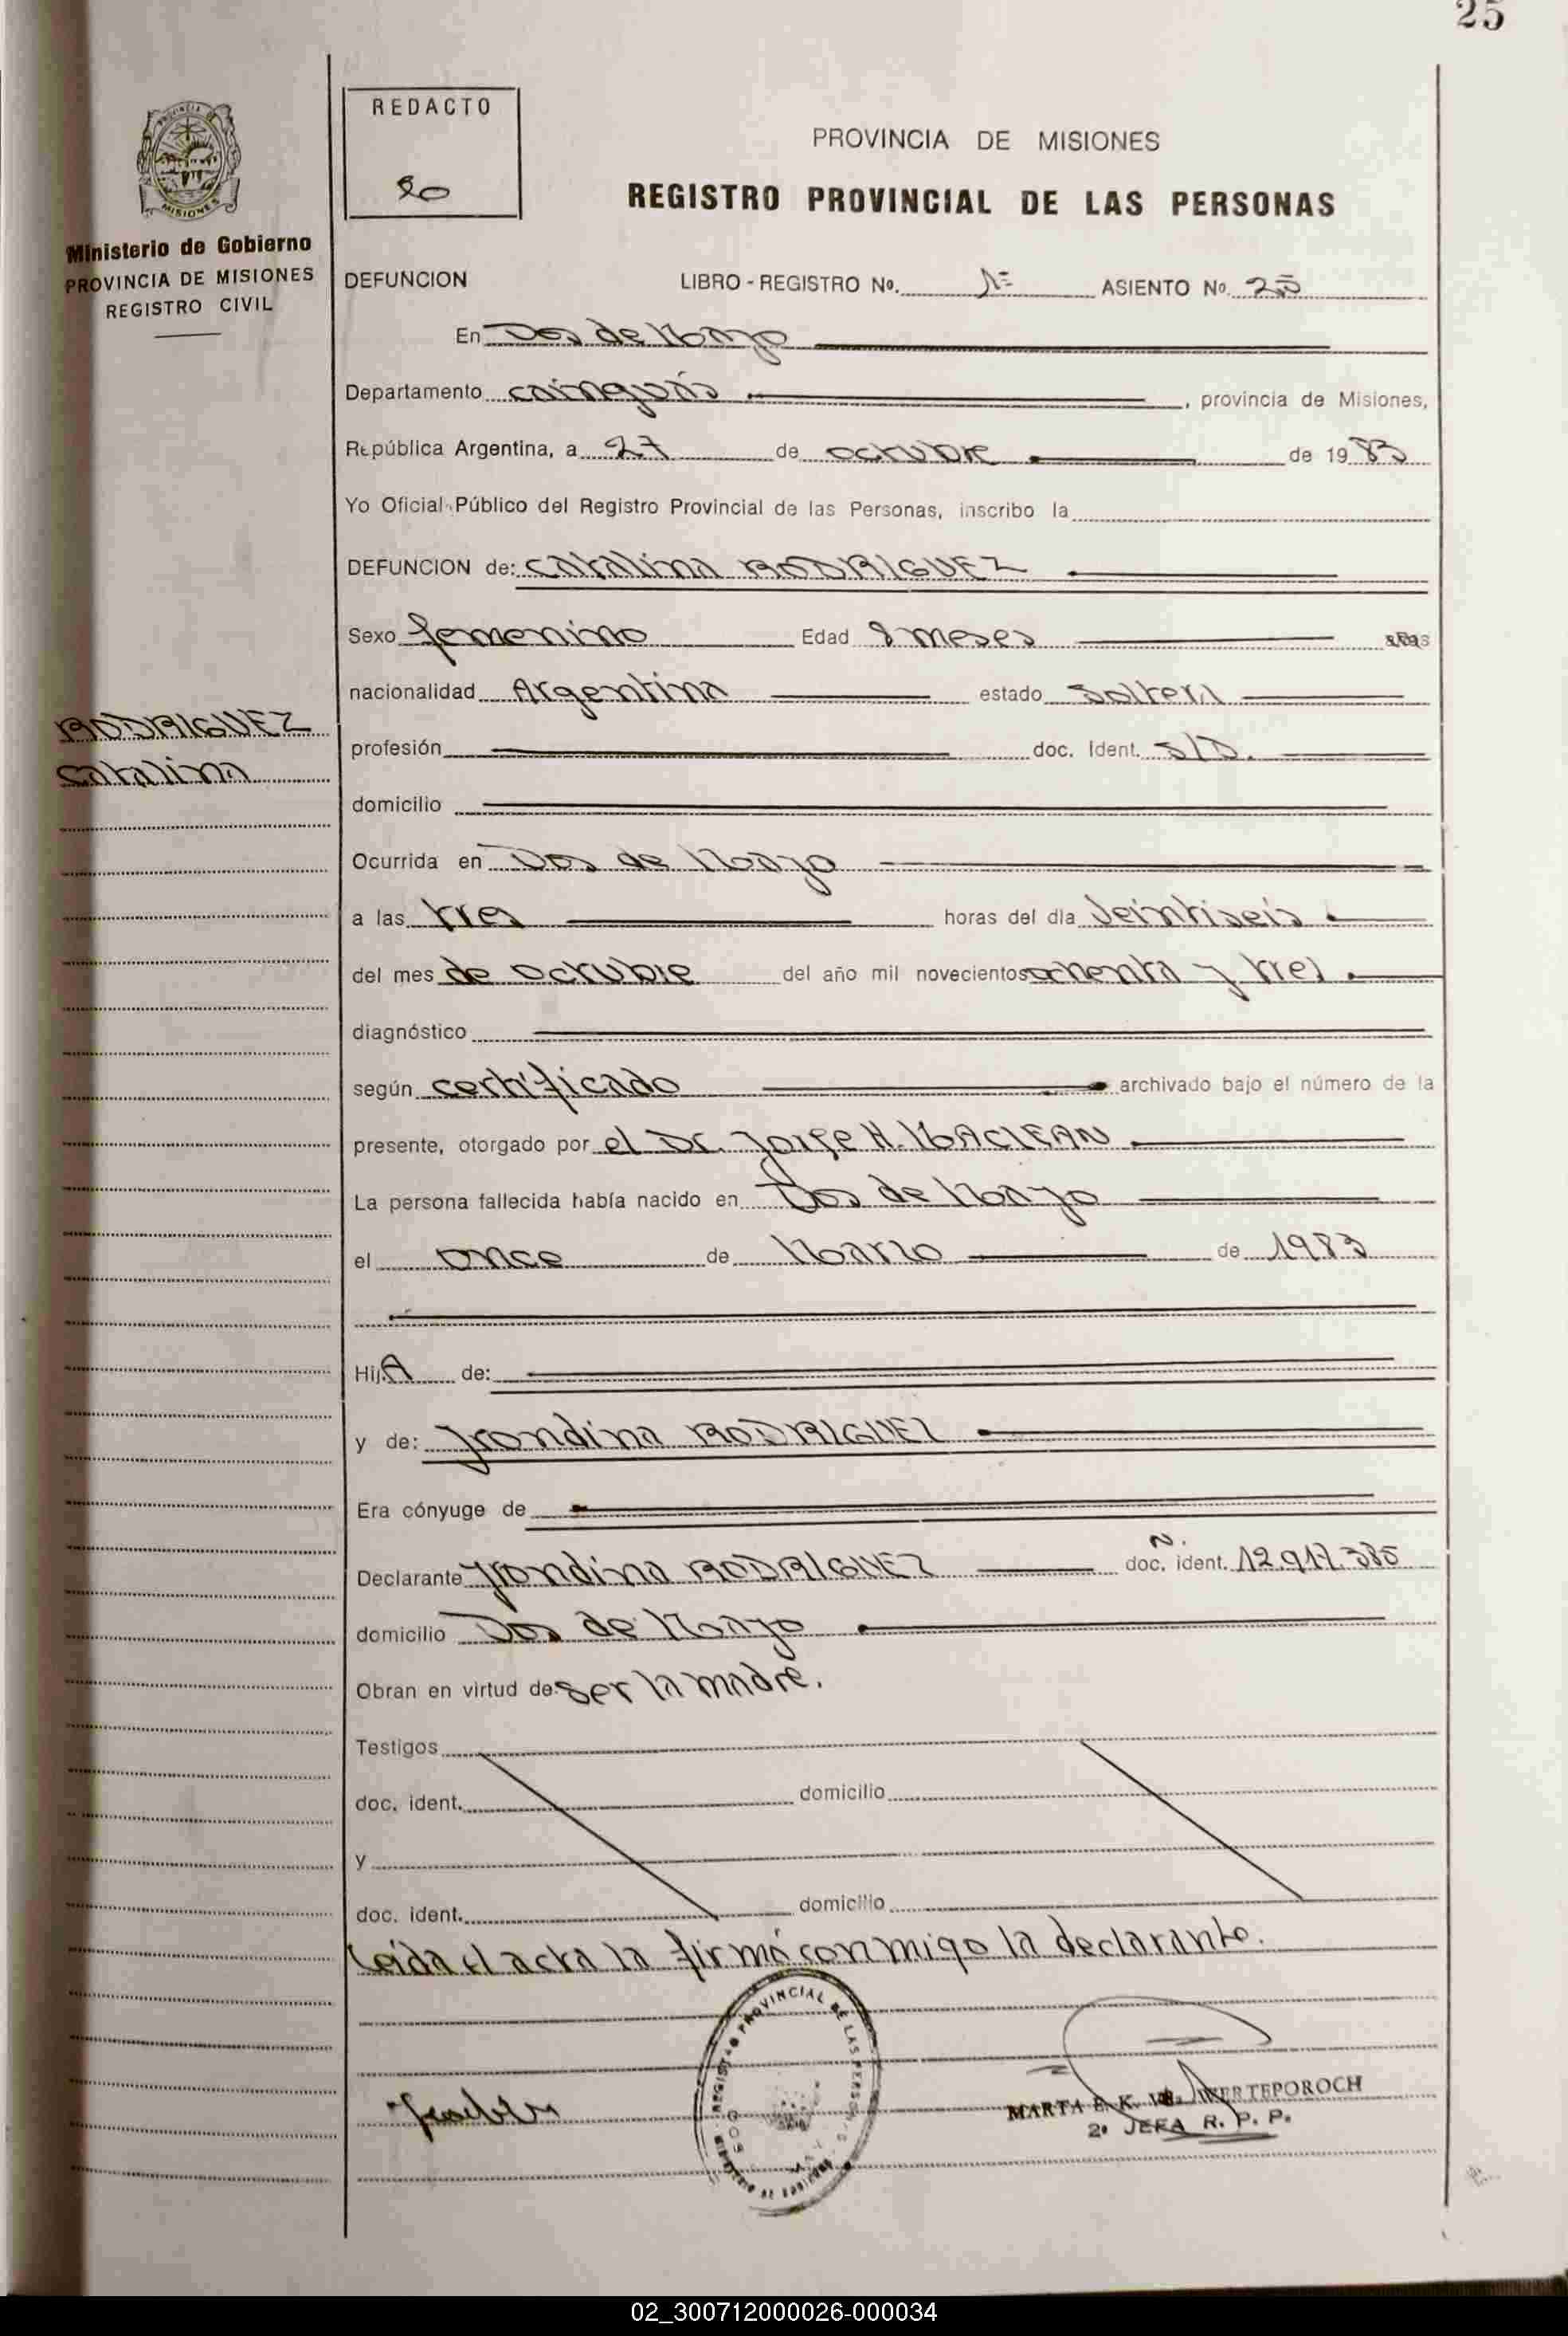 25
REDACTO
20
PROVINCIA DE MISIONES
REGISTRO PROVINCIAL DE LAS PERSONAS
Ministerio de Gobierno
PROVINCIA DE MISIONES
REGISTRO CIVIL
DEFUNCION LIBRO - REGISTRO No. 1º ASIENTO No. 25
En Dos de Mayo
Departamento Cainguás, provincia de Misiones,
República Argentina, a 27 de octubre de 1983
Yo Oficial Público del Registro Provincial de las Personas, inscribo la
DEFUNCION de: Catalina RODRIGUEZ
Sexo femenino Edad 8 meses años
nacionalidad Argentina estado soltera
RODRIGUEZ
Catalina
profesión doc. Ident. S/D.
domicilio
Ocurrida en Dos de Mayo
a las tres horas del día veintiseis
del mes de octubre del año mil novecientos ochenta y tres
diagnóstico
según certificado archivado bajo el número de la
presente, otorgado por el Dr. Jorge H. MACLEAN
La persona fallecida había nacido en Dos de Mayo
el once de Marzo de 1983
HijA de:
y de: RODRIGUEZ
Era cónyuge de
Declarante RODRIGUEZ doc. ident. N. 12.917.385
domicilio Dos de Mayo
Obran en virtud de ser la madre.
Testigos
doc. ident. domicilio
y
doc. ident. domicilio
Leída el acta la firmó conmigo la declarante.
REGISTRO PROVINCIAL DE LAS PERSONAS
MARTA E. K. WERTEPOROCH
2º JEFA R. P. P.
02_300712000026-000034